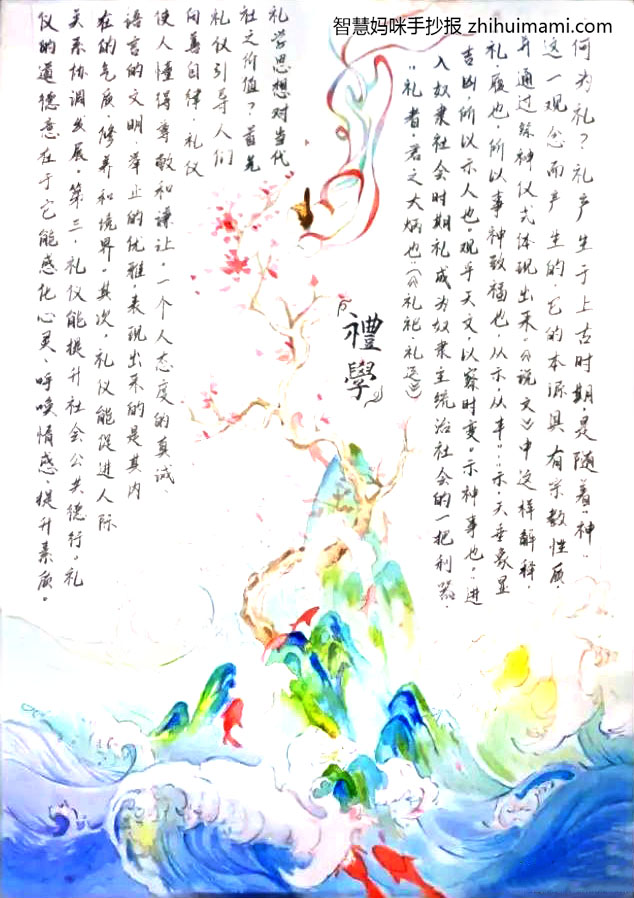 智慧妈咪手抄报 zhihuimami.com
何为礼？礼产生于上古时期，是随着“神”
这一观念而产生的，它的本源具有宗教性质，
并通过祭神仪式体现出来。《说文》中这样解释，
礼履也，所以事神致福也，从示从丰。”示，天垂象显
吉凶，所以示人也。观乎天文，以察时变。示神事也。”进
入奴隶社会时期礼成为奴隶主统治社会的一把利器，
“礼者，君之大柄也”（《礼记·礼运》）
禮學
礼学思想对当代
社之价值？首先
礼仪引导人们
向善自律，礼仪
使人懂得尊敬和谦让。一个人态度的真诚、
语言的文明，举止的优雅，表现出来的是其内
在的气质、修养和境界。其次，礼仪能促进人际
关系协调发展。第三，礼仪能提升社会公共德行。礼
仪的道德意在于它能感化心灵、呼唤情感，提升素质。